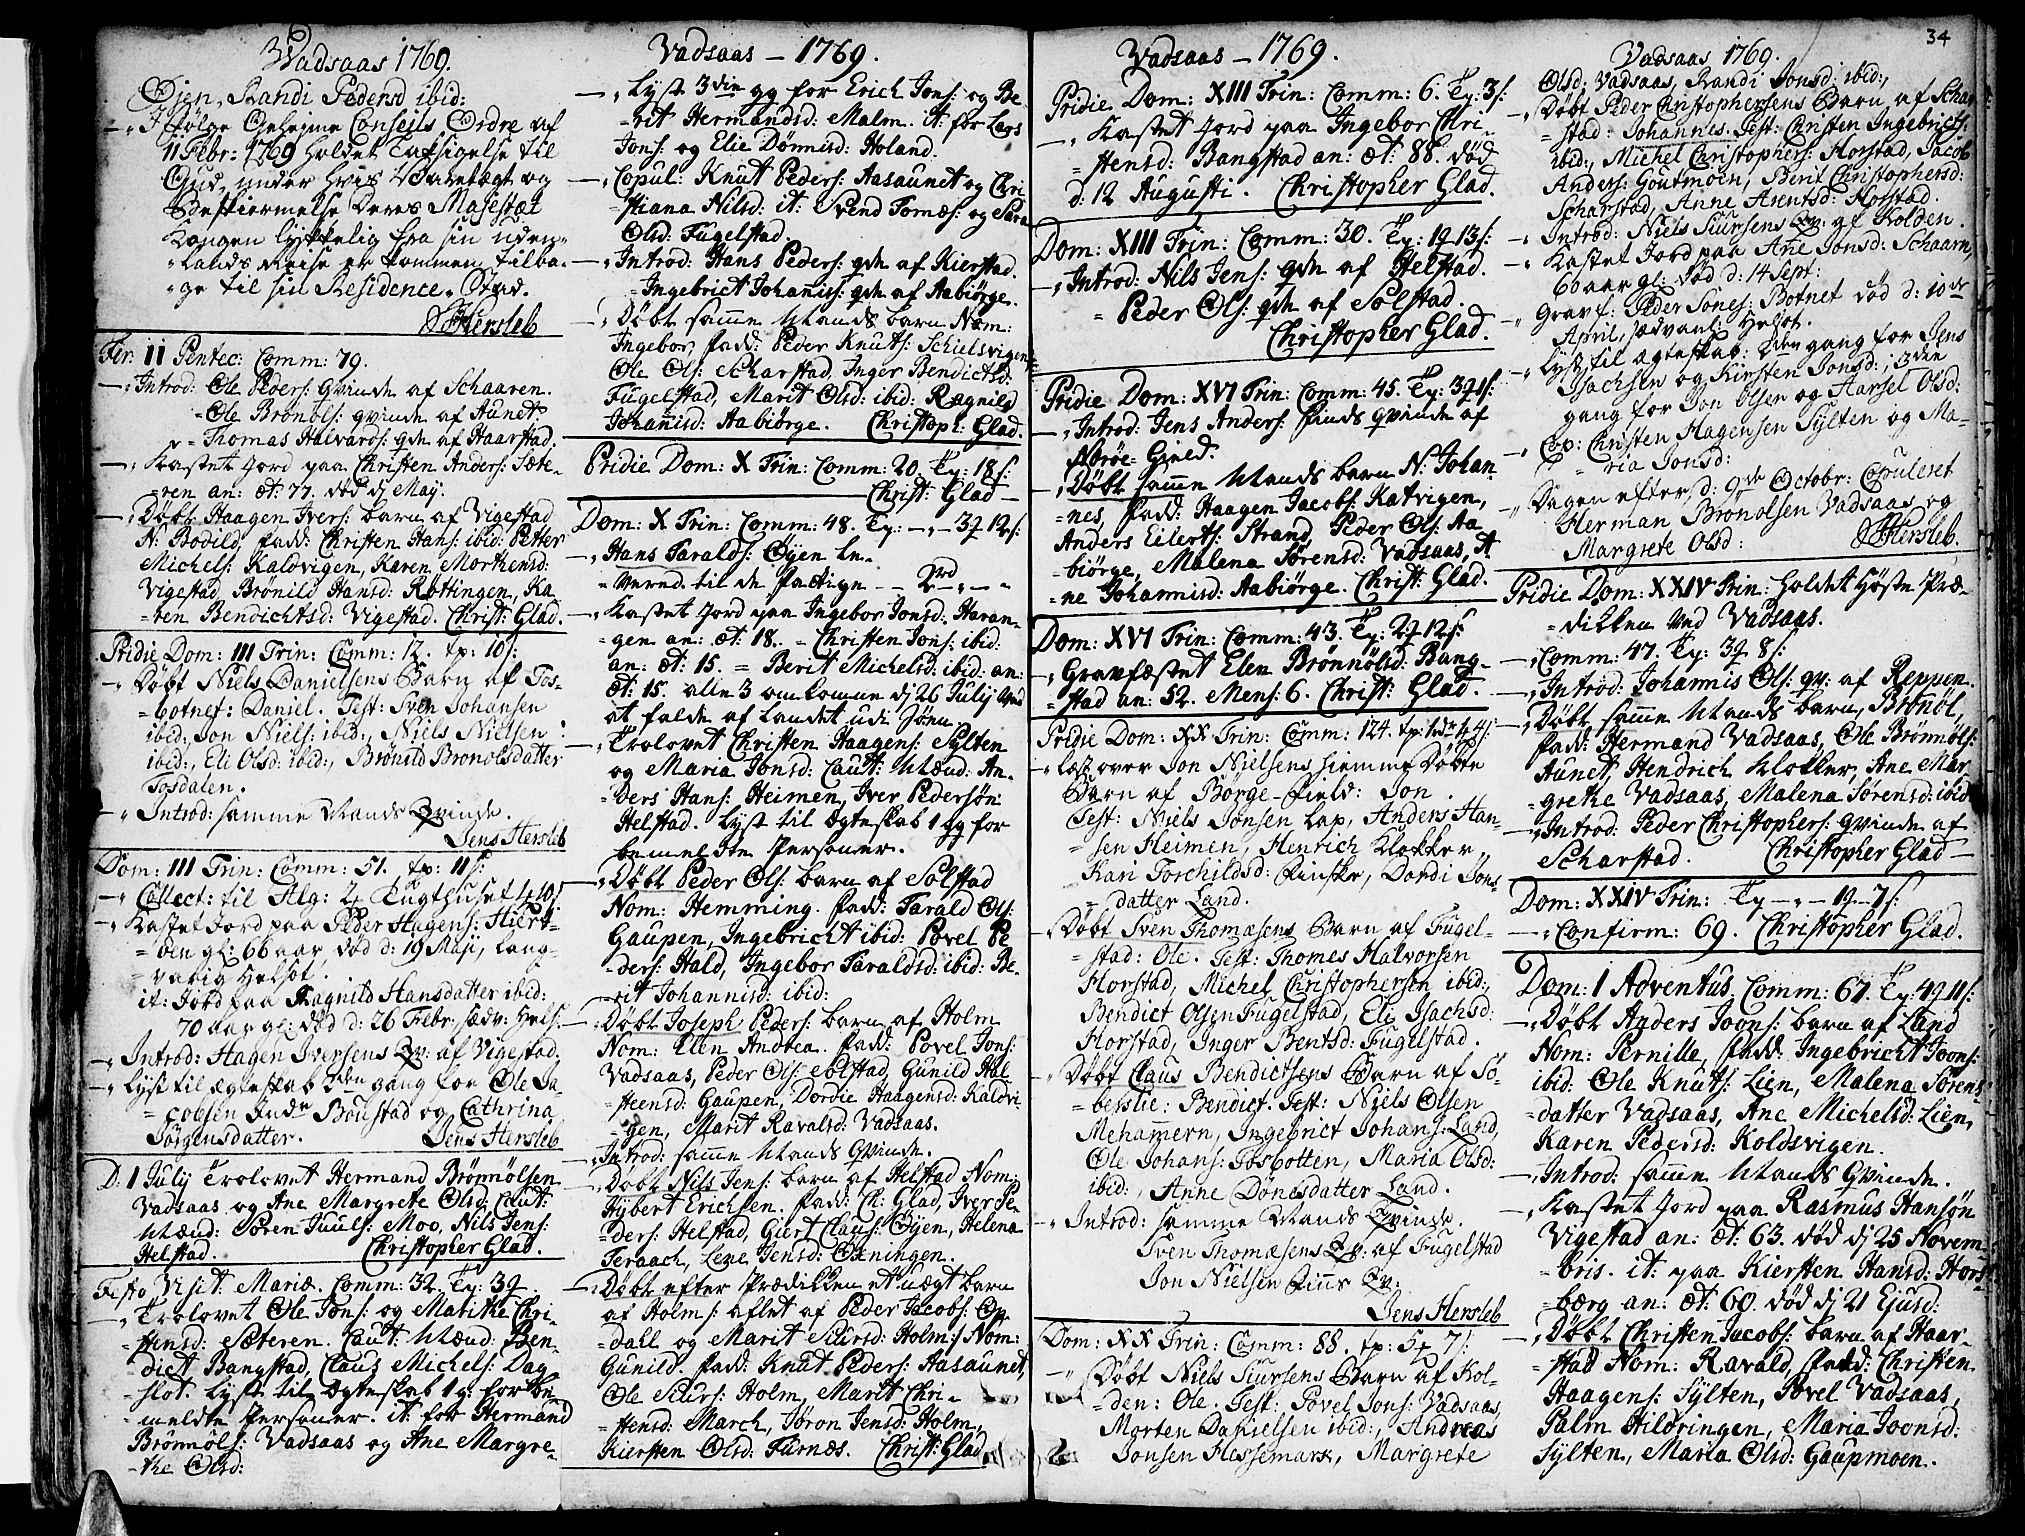 Vadsaas 1769.
Øien, Randi Pedersd ibid:
I følge Geheime Conseils Ordre af
11 Febr: 1769 holdet Taksigelse til
Gud, under hvis Varetægt og
Beskiermelse Deres Majestæt
Kongen lykkelig fra sin uden-
lands Reise er kommen tilba-
ge til sin Residence-Stad.
Hersleb
Fer: II Pentec: Comm: 79.
Introd: Ole Peders: Qvinde af Schaaren.
Ole Brønols: qvinde af Aunet.
Thomas Halvards: qvd af Haarstad.
Kastet Jord paa Christen Anders: Sæte-
ren an: æt: 77. død d. May.
Døbt Haagen Ivers: barn af Vigestad
N: Bodild, fadd: Christen Hans: ibid: Petter
Michels: Kaldvigen, Karen Morthensd:
Vigestad, Brønild Hansd: Røttingen, Ka-
ren Bendichtsd: Vigestad. Christ: Glad.
Pridie Dom: III Trin: Comm: 12. tp: 10 s:
Døbt Niels Danielsens Barn af Fos-
botnet: Daniel. Test: Sven Johansen
ibid:, Jon Niels: ibid:, Niels Nielsen
ibid:, Eli Olsd: ibid:, Brønild Bronolsdatter
Fosdalen.
Introd: samme Mands Qvinde.
Jens Hersleb
Dom: III Trin: Comm: 51. tp: 11 s:
Collect: til Alg: Tugthuset
Kastet Jord paa Peder Hagens: Hiert-
øen gl: 66 aar, død d: 19 Maji, lang-
varig Helsot.
it: Jord paa Ragnild Hansdatter ibid:
70 aar gl: død d: 26 Febr: sædv: Hels:
Introd: Hagen Iversens Qv: af Vigestad.
Lyst til ægteskab 3den gang for Ole Ja-
cobsen Indr Boustad og Cathrina
Jørgensdatter. Jens Hersleb
D: 1 July Trolovet Hermand Brønnølsen
Vadsaas og Ane Margrete Olsd: Caut:
Mænd: Søren Juuls: Moo, Nils Jens:
Helstad. Christopher Glad.
Festo Visit Mariæ. Comm: 32. Tp: 39
Trolovet Ole Jons: og Marithe Chri-
stensd: Sæteren. Caut: Mænd: Ben-
dict Bangstad, Claus Michels: Dag-
slot. Lyst til Ægteskab 1 g: for be-
meldte Personer. it: for Hermand
Brønnøls: Vadsaas og Ane Margre-
the Olsd:
Vadsaas – 1769.
Lyst 3die gg for Erich Jons: og Be-
rit Hermandsd: Malm. it: for Lars
Jons: og Elie Dønnisd: Holand.
Copul: Knut Peders: Aasaunet og Chri-
stiana Nilsd: it: Svend Tomæs: og Sara
Olsd: Fugelstad.
Introd: Hans Peders: qvd af Kierstad.
Ingebrict Johaniss: qvd af Aabiørge.
Døbt samme Mands barn Nom:
Ingebor, fadd: Peder Knuts: Schielsvigen
Ole Ols: Scharstad, Inger Bendictsd:
Fugelstad, Marit Olsd: ibid: Ragnild
Johanisd: Aabiørge. Christoph: Glad.
Pridie Dom: X Trin: Comm: 20. Tp: 18 s:
Christ: Glad
Dom: X Trin: Comm: 48. Tp: 39 12 s:
Hans Taralds: Øyen
Vered. til de fattige 2rd
Kastet Jord paa Ingebor Jonsd: Haran-
gen an: æt: 18. Christen Jons: ibid:
an: æt: 15. Berit Michelsd: ibid: an:
æt: 15. alle 3 omkomne d. 26 July ved
at falde af Landet udi Søen.
Trolovet Christen Haagens: Sylten
og Maria Jonsd: Caut: Mænd: An-
ders Hans: Heimen, Iver Pedersøn
Helstad. Lyst til ægteskab 1 gg for
bemeldte Personer.
Døbt Peder Ols: barn af Solstad
Nom: Hemming. fadd: Tarald Ols:
Gaupen, Ingebricht ibid: Povel Pe-
ders: Hald, Ingebor Taraldsd: ibid: Be-
rit Johannisd: ibid:
Døbt Joseph Peders: barn af Holm
Nom: Elen Andrea. fadd: Povel Jons:
Vadsaas, Peder Ols: Solstad, Gunild Hal-
steensd: Gaupen, Dordie Haagensd: Kaldvi-
gen, Marit Ravalsd: Vadsaas.
Introd: samme Mands Qvinde.
Døbt Nils Jens: barn af Helstad Nom:
Hybert Erichsen. fadd: Ch: Glad, Iver Pe-
ders: Helstad, Giert Claus: Øyen, Helena
Teraach, Lene Jensd: Oxningen.
Døbt efter Prædikken et uægt barn
af Holm /: aflet af Peder Jacobs: Op-
dall og Marit Siursd: Holm :/ Nom:
Gunild. fadd: Knut Peders: Aasaunet,
Ole Siurs: Holm, Marit Chri-
stensd: March, Jøron Jensd: Holm,
Kiersten Olsd: Furnæs. Christ: Glad
Vadsaas – 1769.
Pridie Dom: XIII Trin: Comm: 6. Tp: 3 s:
Kastet Jord paa Ingebor Chri-
stensd: Bangstad an: æt: 88. død
d. 12 Augusti. Christopher Glad.
Dom: XIII Trin: Comm: 30. Tp: 19 13 s:
Introd: Nils Jens: qvd af Helstad.
Peder Ols: qvd af Solstad.
Christopher Glad.
Pridie Dom: XVI Trin: Comm: 45. Tp: 39 1 s:
Introd: Jens Anders: finds qvinde af
Nærøe-Gield.
Døbt samme Mands barn N: Johan-
nes, fadd: Haagen Jacobs: Katvigen,
Anders Eilerts: Strand, Peder Ols: Aa-
biørge, Malena Sørensd: Vadsaas, A-
ne Johannisd: Aabiørge. Christ: Glad.
Dom: XVI Trin: Comm: 43. Tp: 29 12 s:
Gravfæstet Elen Brønnølsd: Bang-
stad an: 52. Mens: 6. Christ: Glad.
Pridie Dom: XX Trin: Comm: 124. tp:
Læst over Jon Nielsens hiemme Døbte
Barn af Børge-Field: Jon.
Test: Niels Jonsen Lap, Anders Han-
sen Heimen, Henrich Klokker,
Kari Torchildsd: Finske, Dordi Jons-
datter Land.
Døbt Sven Thomæsens Barn af Fugel-
stad: Ole. Test: Thomes Halvorsen
Horstad, Michel Christophersen ibid:,
Bendict Olsen Fugelstad, Eli Isachsd:
Horstad, Inger Bentsd: Fugelstad.
Døbt Claus Bendictsens Barn af Sø-
berslie: Bendict. Test: Niels Olsen
Mehammern, Ingebrict Johans: Land,
Ole Johans: Fosbotten, Maria Olsd:
ibid:, Anne Dønesdatter Land.
Introd: samme Mands Qvinde.
Sven Thomæsens Qv: af Fugelstad
Jon Nielsen Finns Qv:
Jens Hersleb
Dom: XX Trin: Comm: 88. tp: 5 7 s:
Døbt Niels Siursens Barn af Kol-
den: Ole. Test: Povel Jons: Vadsaas,
Morten Danielsen ibid:, Andreas
Jonsen Flassemark, Margrete
34
Vadsaas 1769.
Olsd: Vadsaas, Randi Jonsd: ibid:,
Døbt Peder Christophersens Barn af Schar-
stad: Johannis. Test: Christen Ingebrichts:
ibid:, Michel Christophers: Horstad, Jacob
Anders: Goutmoen, Berit Christophersd:
Scharstad, Anne Arentsd: Horstad.
Introd: Niels Siursens Qv: af Kolden.
Kastet Jord paa Ane Jonsd: Schaarn,
60 aar gl: død d: 14 Sept:
Gravf: Peder Jonss: Botnet død d: 10de
April, sædvanl: Helsot.
Lyst til ægteskab: 2den gang for Jens
Isachsen og Kirsten Jonsd:, 3den
gang for Jon Olsen og Marsel Olsd:
Cop: Christen Hagensen Sylten og Ma-
ria Jonsd:
Dagen efter d: 9de Octobr: Copuleret
Herman Brønolsen Vadsaas og
Margrete Olsd: Hersleb.
Pridie Dom: XXIV Trin: holdet Høste Præ-
dikken ved Vadsaas.
Comm: 47. Tp: 39 8 s:
Introd: Johannis Ols: qv: af Reppen.
Døbt samme Mands barn, Brønøl,
fadd: Hermand Vadsaas, Ole Brønnøls:
Aunet, Hendrich Klokker, Ane Mar-
grethe Vadsaas, Malena Sørensd: ibid:
Introd: Peder Christophers: qvinde af
Scharstad. Christopher Glad
Dom: XXIV Trin: Tp 19 7 s:
Confirm: 69. Christopher Glad.
Dom: I Adventus. Comm: 67. Tp: 49 11 s:
Døbt Anders Joons: barn af Land
Nom: Pernille, fadd: Ingebricht Joons:
ibid: Ole Knuts: Lien, Malena Sørens-
datter Vadsaas, Ane Michelsd: Lien,
Karen Pedersd: Koldsvigen.
Introd: samme Mands Qvinde.
Kastet Jord paa Rasmus Hansøn
Vigestad an: æt: 63. død d. 25 Novem-
bris. it: paa Kiersten Hansd: Hors-
bærg an: æt: 60. død d. 21 Ejusd:
Døbt Christen Jacobs: barn af Haar-
stad Nom: Ravald, fadd: Christen
Haagens: Sylten, Povel Vadsaas,
Palm Hildringen, Maria Joonsd:
Sylten, Maria Olsd: Gaupmoen.